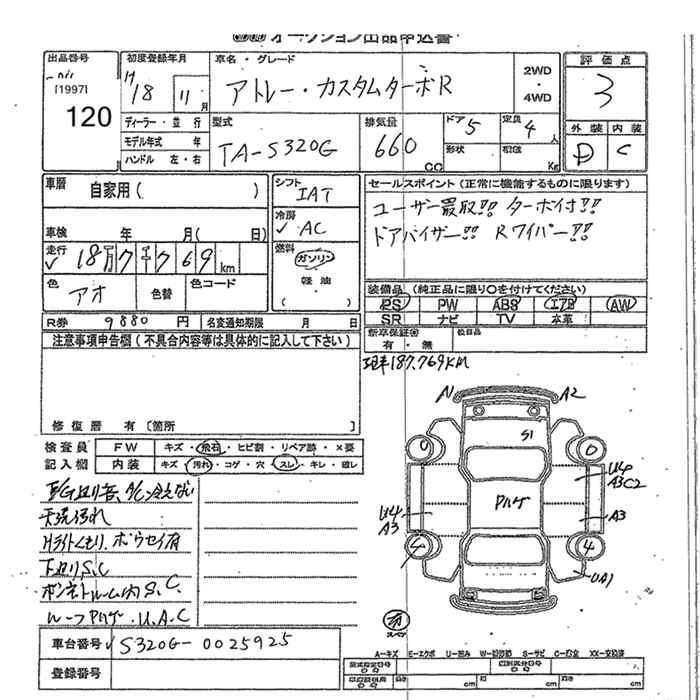 オークション出品申込書
出品番号
[1997]
120
初度登録年月
H 18 11月
車名・グレード
アトレー・カスタムターボR
2WD
・
4WD
評価点
3
ディーラー・並行
モデル年式 年
ハンドル 左・右
型式
TA-S320G
排気量
660 CC
ドア 5
形状
定員 4人
積載 Kg
外装 内装
D C
車歴 自家用( )
車検 年 月( 日)
走行
✓ 18万7千769km
シフト
IAT
冷房
✓ AC
燃料
ガソリン
軽油
セールスポイント(正常に機能するものに限ります)
ユーザー買取!! ターボ付!!
ドアバイザー!! Rワイパー!!
色 アオ
色替
色コード
装備品(純正品に限り○を付けてください)
PS PW ABS エアB AW
SR ナビ TV 本革
R券 9880円
名変通知期限 月 日
新車保証書
有・無
後日品
注意事項申告欄(不具合内容等は具体的に記入して下さい)
現車187.769KM
修復歴 有〔箇所 〕
検査員
記入欄
FW キズ・飛石・ヒビ割・リペア跡・×要
内装 キズ・汚れ・コゲ・穴・スレ・キレ・破レ
A1 A2
S1
U4
A3C2
Pルゲ
U4
A3
A3
4
UA1
天張汚れ
Hライトくもり.ボウセイ有
下廻りS.C
ボンネトルーム内S.C.
ルーフPルゲ.U.A.C
車台番号 ✓ S320G-0025925
登録番号
スペア
A-キズ E-エクボ U-凹み W-補修跡 S-サビ C-腐食 XX-交換済
型式指定番号
類別区分番号
cm cm cm